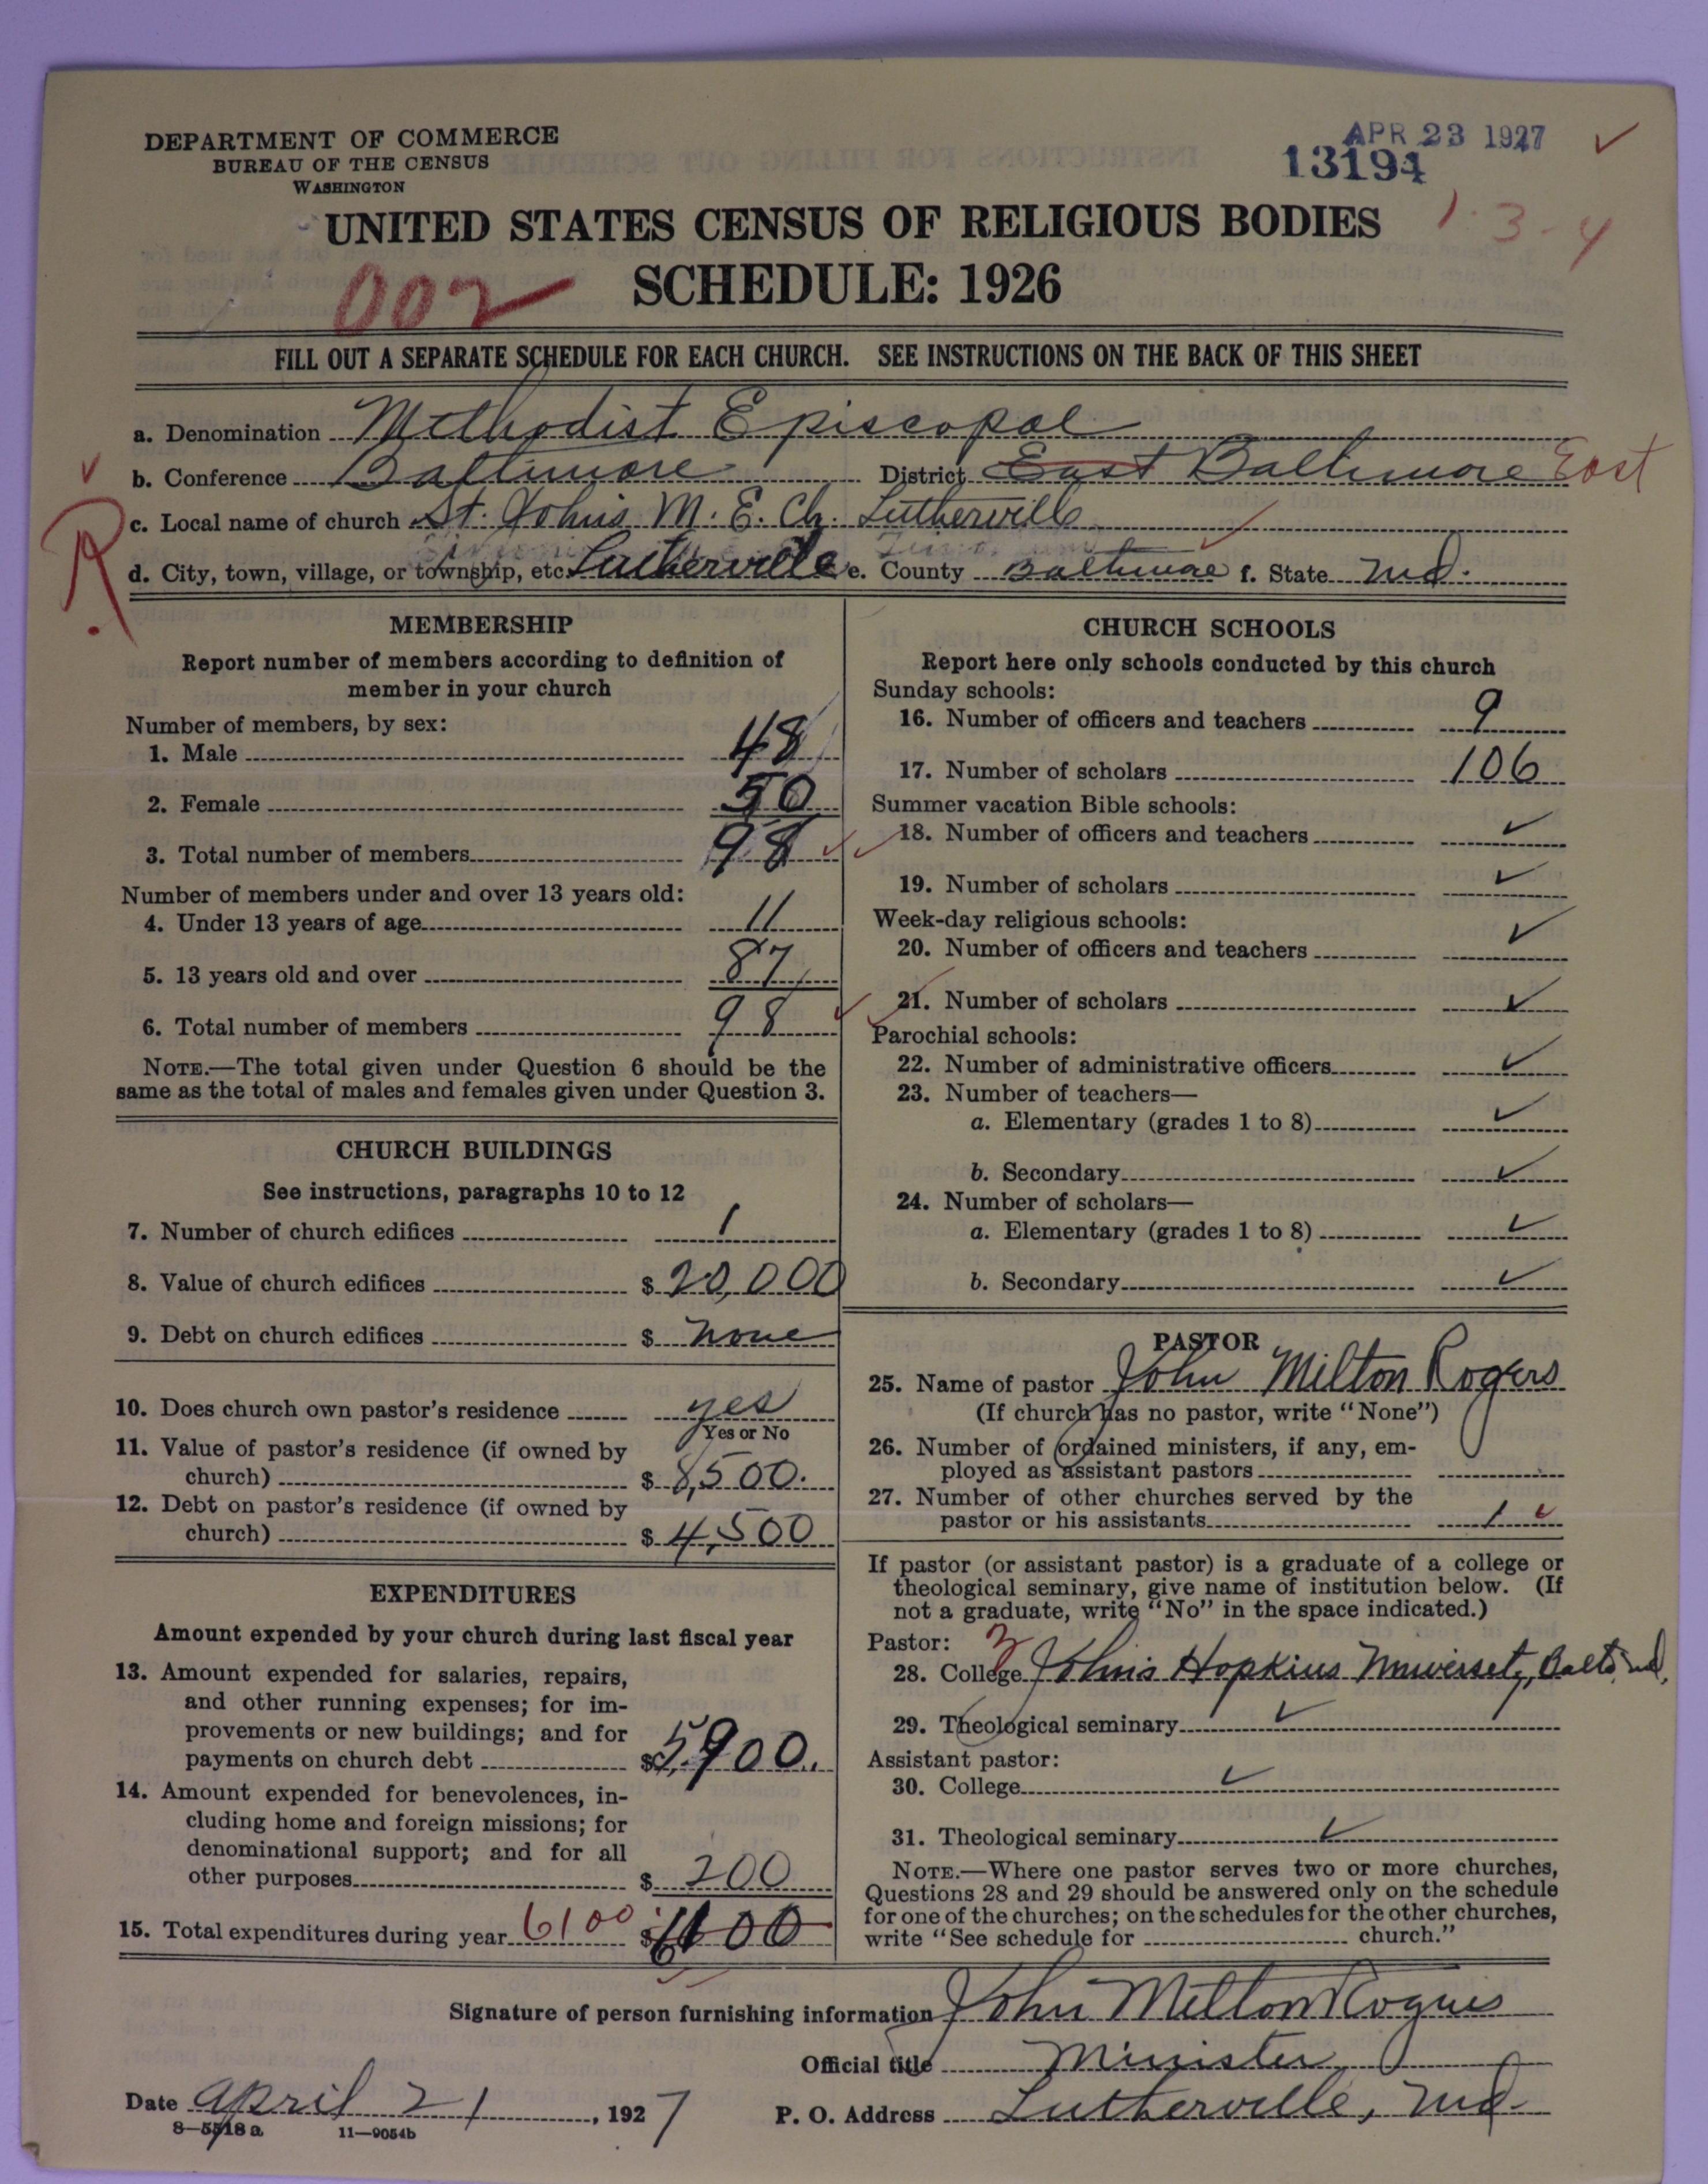 DEPARTMENT OF COMMERCE
BUREAU OF THE CENSUS
WASHINGTON
APR 23 1927 ✓
13194
UNITED STATES CENSUS OF RELIGIOUS BODIES
1-3-4
002
SCHEDULE: 1926
FILL OUT A SEPARATE SCHEDULE FOR EACH CHURCH. SEE INSTRUCTIONS ON THE BACK OF THIS SHEET
a. Denomination Methodist Episcopal
b. Conference Baltimore District East Baltimore East
R.
c. Local name of church St. Johns M. E. Ch. Lutherville
d. City, town, village, or township, etc. Lutherville e. County Baltimore f. State Md.
MEMBERSHIP
Report number of members according to definition of
member in your church
Number of members, by sex:
1. Male 48
2. Female 50
3. Total number of members 98
Number of members under and over 13 years old:
4. Under 13 years of age 11
5. 13 years old and over 87
6. Total number of members 98
NOTE.—The total given under Question 6 should be the
same as the total of males and females given under Question 3.
CHURCH BUILDINGS
See instructions, paragraphs 10 to 12
7. Number of church edifices 1
8. Value of church edifices $ 20,000
9. Debt on church edifices $ None
10. Does church own pastor's residence yes
Yes or No
11. Value of pastor's residence (if owned by
church) $ 8,500.
12. Debt on pastor's residence (if owned by
church) $ 4,500
EXPENDITURES
Amount expended by your church during last fiscal year
13. Amount expended for salaries, repairs,
and other running expenses; for im-
provements or new buildings; and for
payments on church debt $ 5,900.
14. Amount expended for benevolences, in-
cluding home and foreign missions; for
denominational support; and for all
other purposes $ 200
15. Total expenditures during year 6100 $
CHURCH SCHOOLS
Report here only schools conducted by this church
Sunday schools:
16. Number of officers and teachers 9
17. Number of scholars 106
Summer vacation Bible schools:
18. Number of officers and teachers ✓
19. Number of scholars ✓
Week-day religious schools:
20. Number of officers and teachers ✓
21. Number of scholars ✓
Parochial schools:
22. Number of administrative officers ✓
23. Number of teachers—
a. Elementary (grades 1 to 8) ✓
b. Secondary ✓
24. Number of scholars—
a. Elementary (grades 1 to 8) ✓
b. Secondary ✓
PASTOR
25. Name of pastor John Milton Rogers
(If church has no pastor, write "None")
26. Number of ordained ministers, if any, em-
ployed as assistant pastors
27. Number of other churches served by the
pastor or his assistants 1 ✓
If pastor (or assistant pastor) is a graduate of a college or
theological seminary, give name of institution below. (If
not a graduate, write "No" in the space indicated.)
Pastor:
28. College Johns Hopkins University, Balto. Md.
29. Theological seminary ✓
Assistant pastor:
30. College ✓
31. Theological seminary ✓
NOTE.—Where one pastor serves two or more churches,
Questions 28 and 29 should be answered only on the schedule
for one of the churches; on the schedules for the other churches,
write "See schedule for church."
Signature of person furnishing information John Milton Rogers
Official title Minister
Date April 21, 1927 P. O. Address Lutherville, Md.
8—5518 a 11—9054b